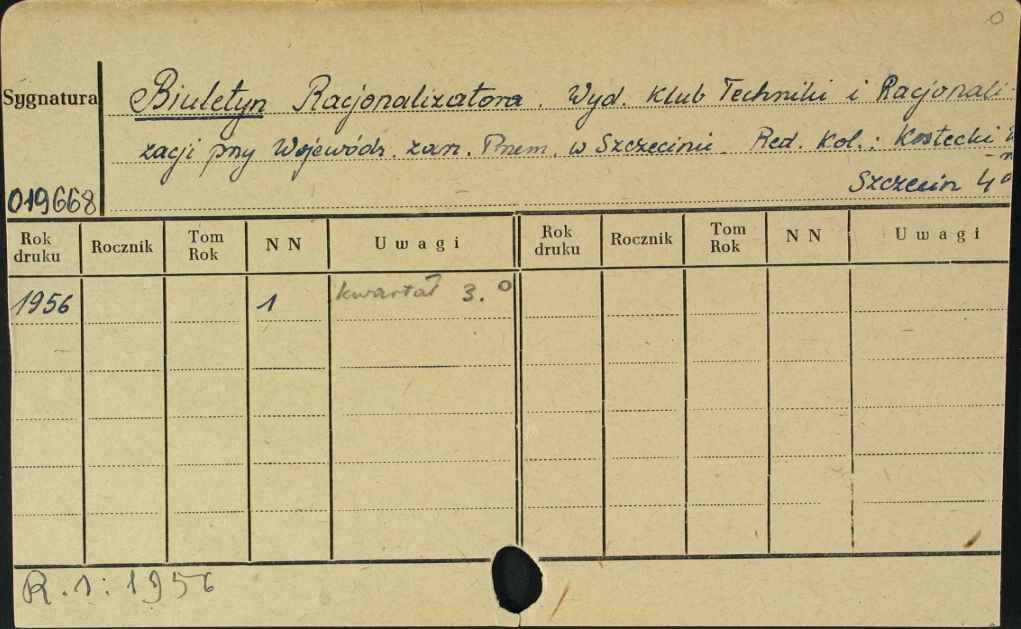 Sygnatura
Biuletyn Racjonalizatora. Wyd. Klub Techniki i Racjonali-
zacji przy Wojewódz. zarz. Przem. w Szczecinie. Red. Kol.: Kostecki
Szczecin 4°
019668
Rok druku Rocznik Tom Rok NN Uwagi Rok druku Rocznik Tom Rok NN Uwagi
1956 1 kwartał 3.
R.1: 1956